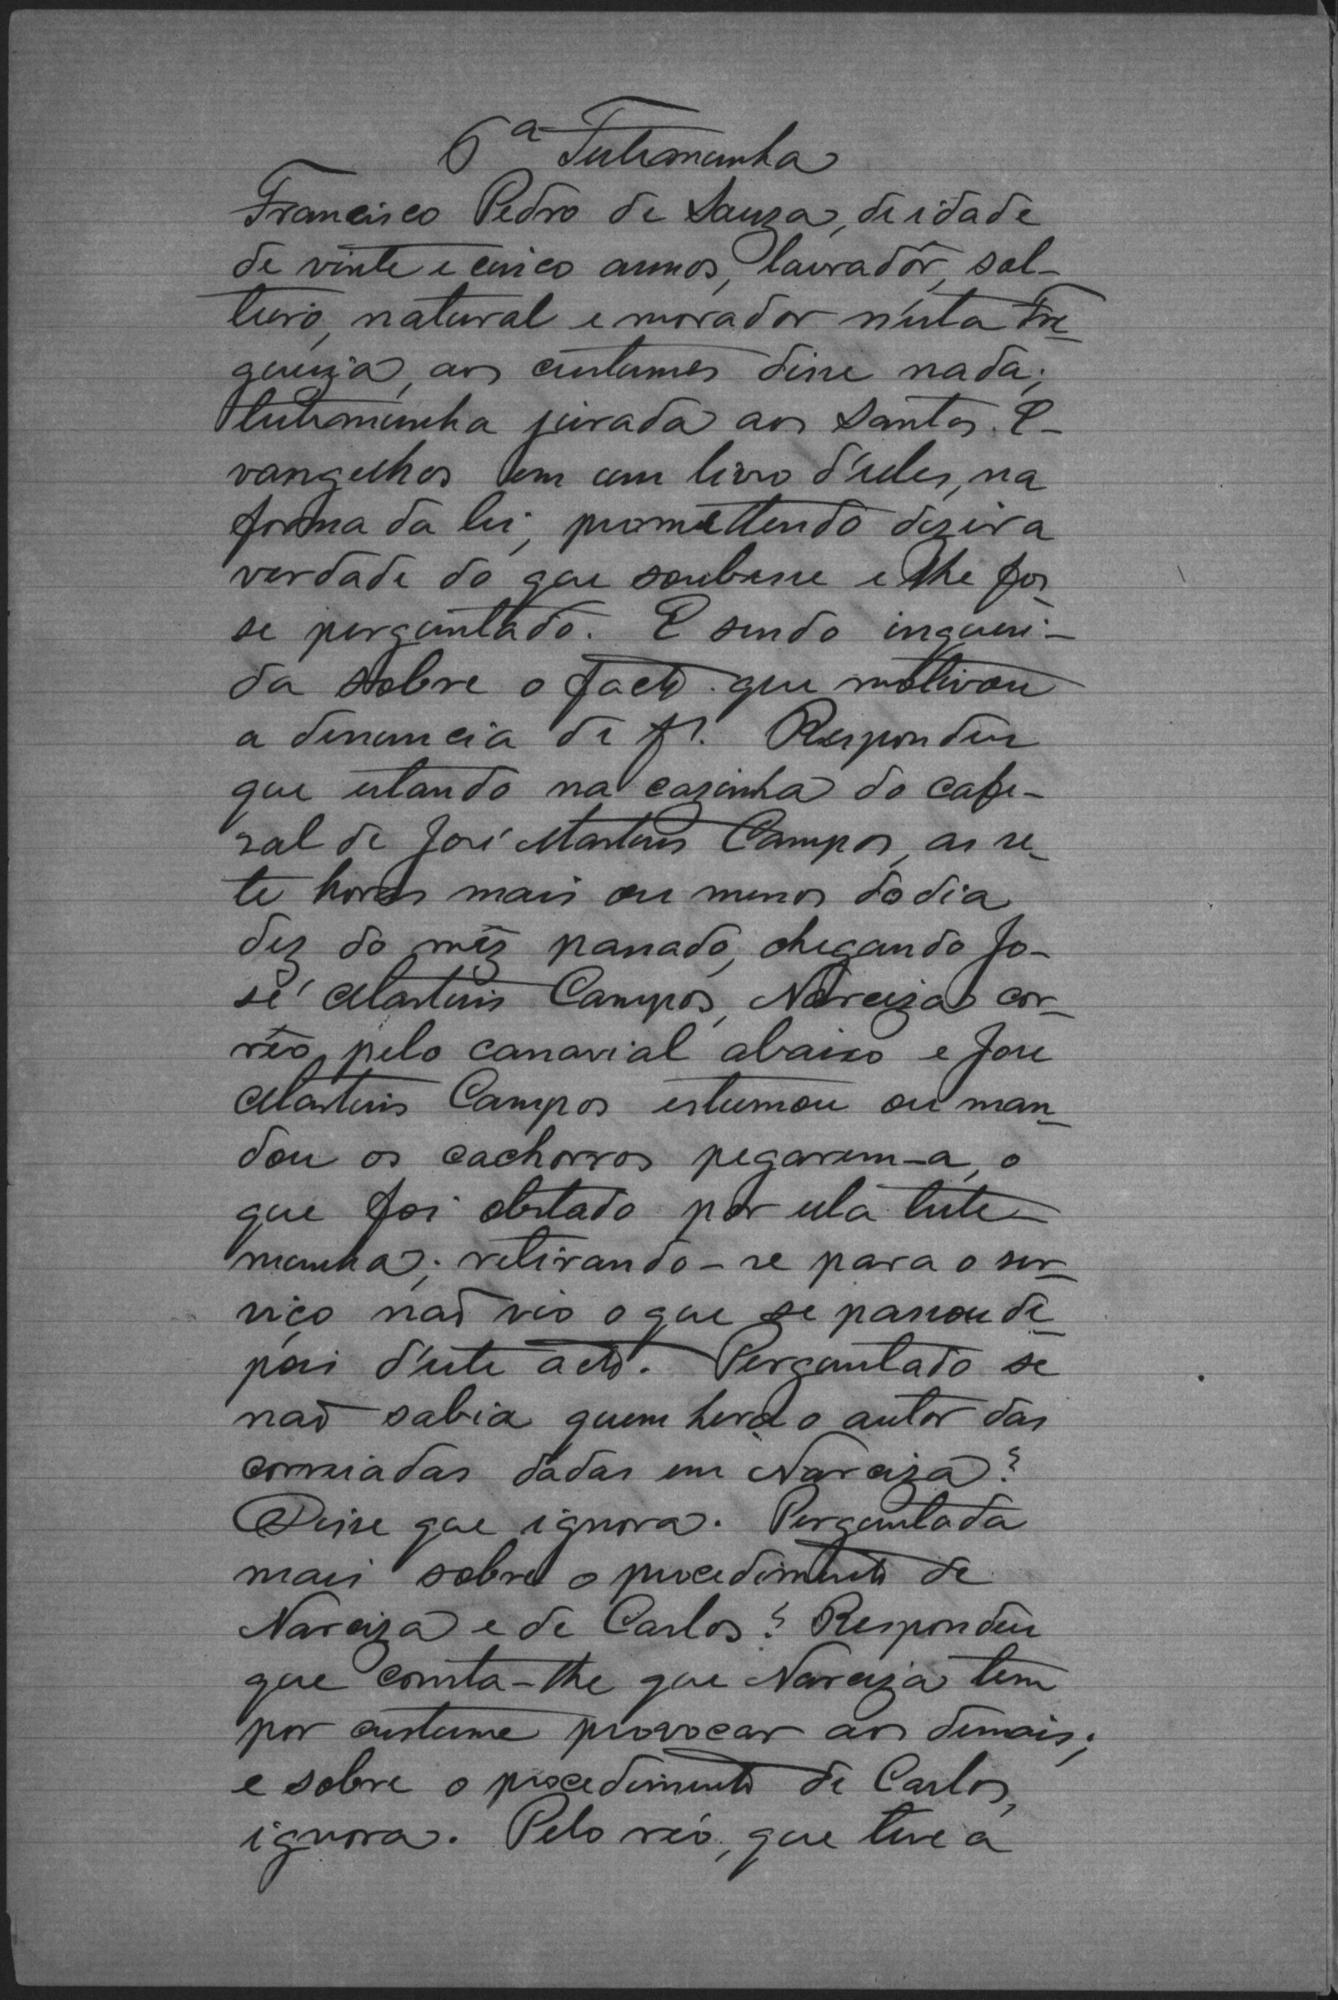 6ª Testemunha
Francisco Pedro de Souza, de idade
de vinte e cinco annos, lavradôr, sol-
teiro, natural e morador n'esta Fre-
guezia, aos custumes disse nada;
testemunha jurada aos Santos E-
vangelhos em um livro d'elles, na
forma da lei, promettendo dizer a
verdade do que soubesse e lhe fos-
se perguntado. E sendo inqueri-
da sobre o facto que motivou
a denuncia de f². Respondeu
que estando na cazinha do cafe-
zal de José Martins Campos, as se-
te horas mais ou menos do dia
dez do mêz passado, chegando Jo-
sé Martins Campos, Narciza cor-
rêo pelo canavial abaixo e José
Martins Campos estumou ou man-
dou os cachorros pegarem-a, o
que foi obstado por esta teste-
munha; retirando-se para o ser-
viço não vio o que se passou de-
pois d'este acto. Perguntado se
não sabia quem hera o autor das
correiadas dadas em Narciza?
Disse que ignora. Perguntada
mais sobre o procedimento de
Narciza e de Carlos? Respondeu
que consta-lhe que Narciza tem
por custume provocar aos demais;
e sobre o procedimento de Carlos,
ignora. Pelo réo, que teve a